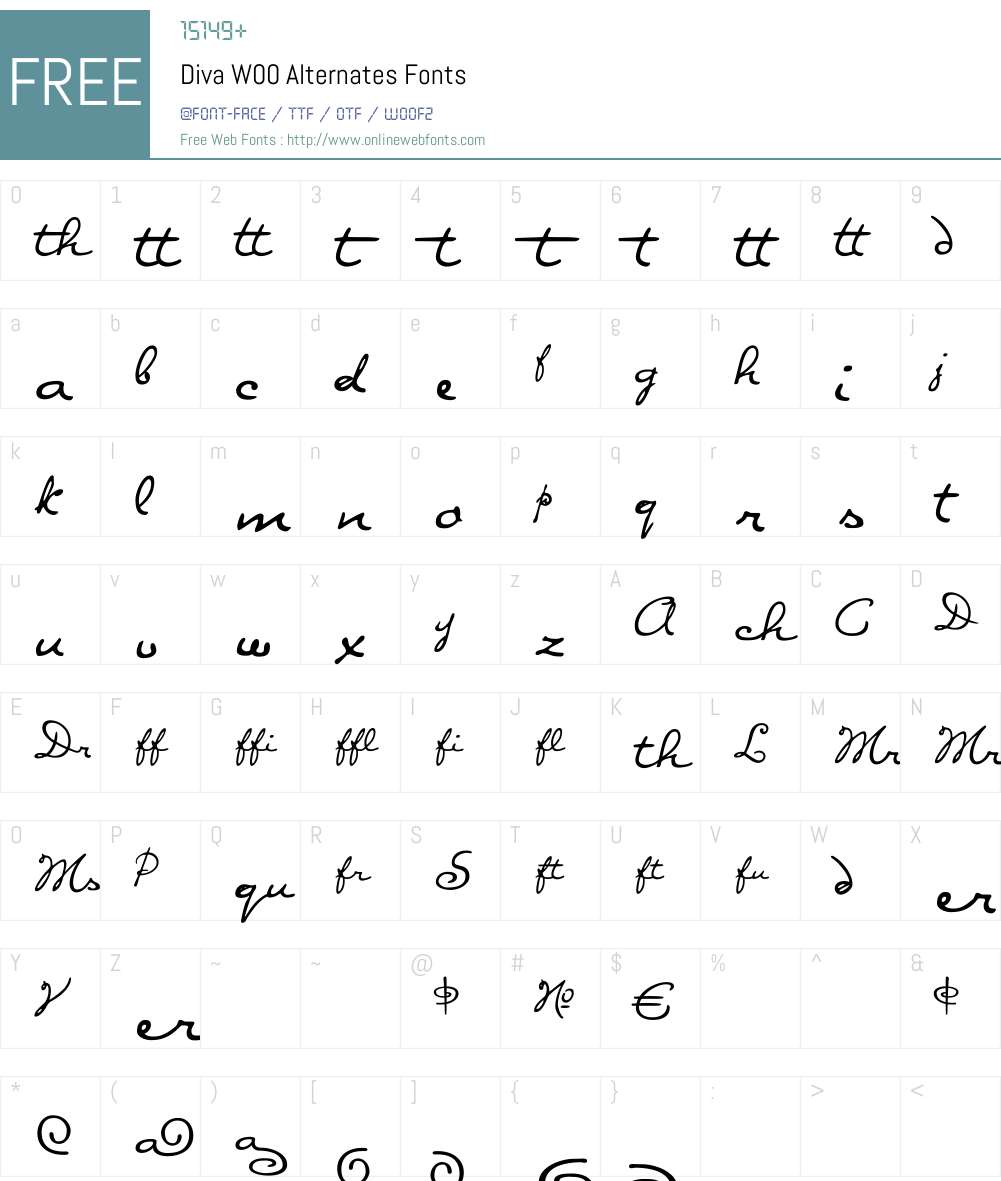 FREE
15149+
Diva W00 Alternates Fonts
@FONT-FACE / TTF / OTF / WOOF2
Free Web Fonts : http://www.onlinewebfonts.com
0 1 2 3 4 5 6 7 8 9
th tt tt t t t t tt tt ∂
a b c d e f g h i j
a b c d e f g h i j
k l m n o p q r s t
k l m n o p q r s t
u v w x y z A B C D
u v w x y z A ch C D
E F G H I J K L M N
Dr ff ffi ffl fi fl th L Mr Mr
O P Q R S T U V W X
Ms P qu fr S ft ft fu ∂ er
Y Z ~ ~ @ # $ % ^ &
Y er № €
* ( ) [ ] { } : > <
a a